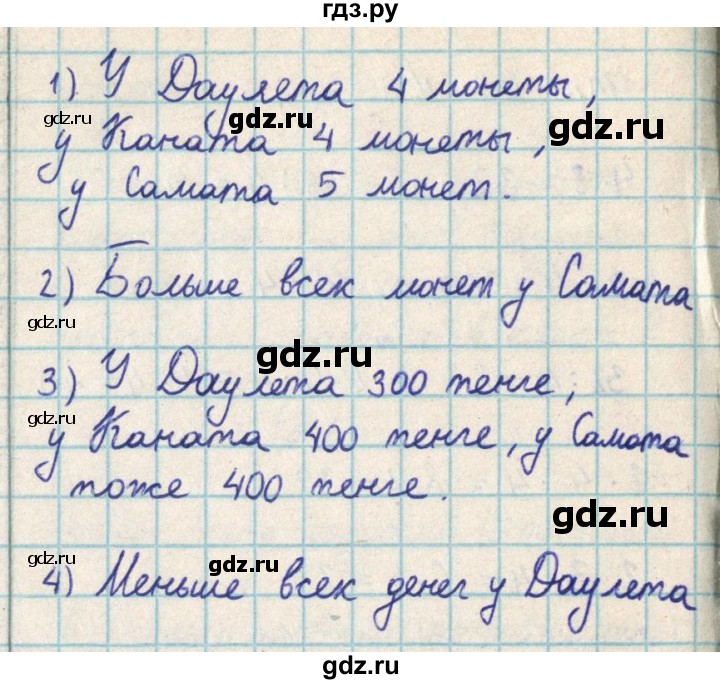 гдз.ру
1) У Даулета 4 монеты,
gdz.ru
gdz.ru
у Каната 4 монеты,
gdz.ru
у Самата 5 монет.
2) Больше всех монет у Самата
gdz.ru
gdz.ru
3) У Даулета 300 тенге,
gdz.ru
у Каната 400 тенге, у Самата
тоже 400 тенге.
gdz.ru
gdz.ru
gdz.ru
4) Меньше всех денег у Даулета
gdz.ru